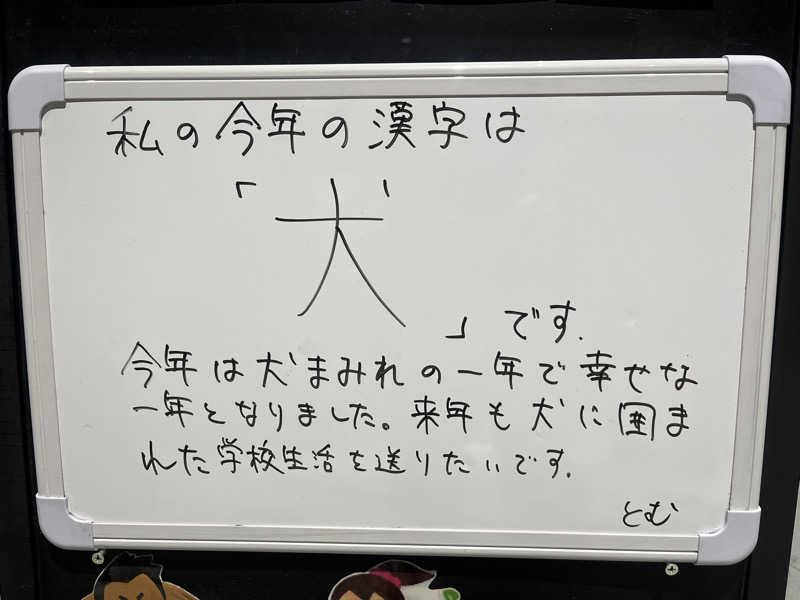 私の今年の漢字は
「犬
」です.
今年は犬まみれの一年で幸せな
一年となりました。来年も犬に囲ま
れた学校生活を送りたいです.
とむ